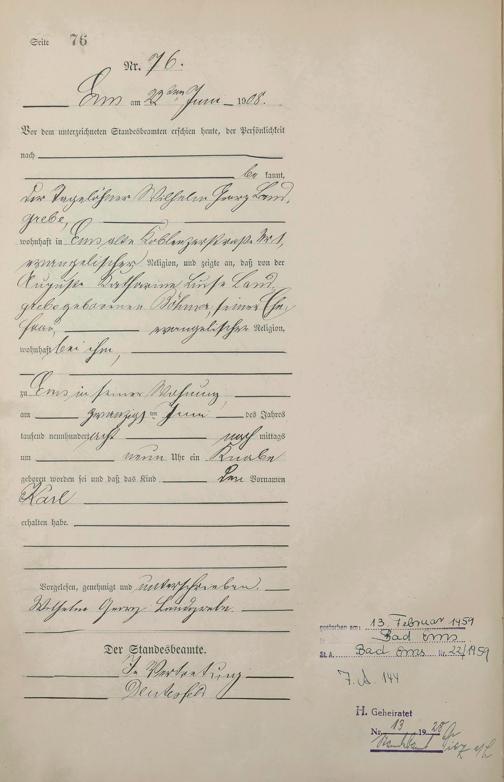 Seite 76
Nr. 76.
Ems am 22ten Juni 1908.
Vor dem unterzeichneten Standesbeamten erschien heute, der Persönlichkeit
nach
be kannt,
der Tagelöhner Wilhelm Georg Land,
grebe,
wohnhaft in Ems, alte Koblenzerstraße Nr. 1,
evangelischer Religion, und zeigte an, daß von der
Auguste Katharine Luise Land,
grebe geborenen Böhmer, seiner Ehe,
frau, evangelischer Religion,
wohnhaft bei ihm,
zu Ems in seiner Wohnung
am zwanzigsten Juni des Jahres
tausend neunhundert acht nach mittags
um neun Uhr ein Knabe
geboren worden sei und daß das Kind den Vornamen
Karl
erhalten habe.
Vorgelesen, genehmigt und unterschrieben.
Wilhelm Georg Landgrebe.
Der Standesbeamte.
In Vertretung
gestorben am: 13. Februar 1959
Bad Ems
St. A. Bad Ems Nr. 22/1959
144
H. Geheiratet
Nr. 13 1928